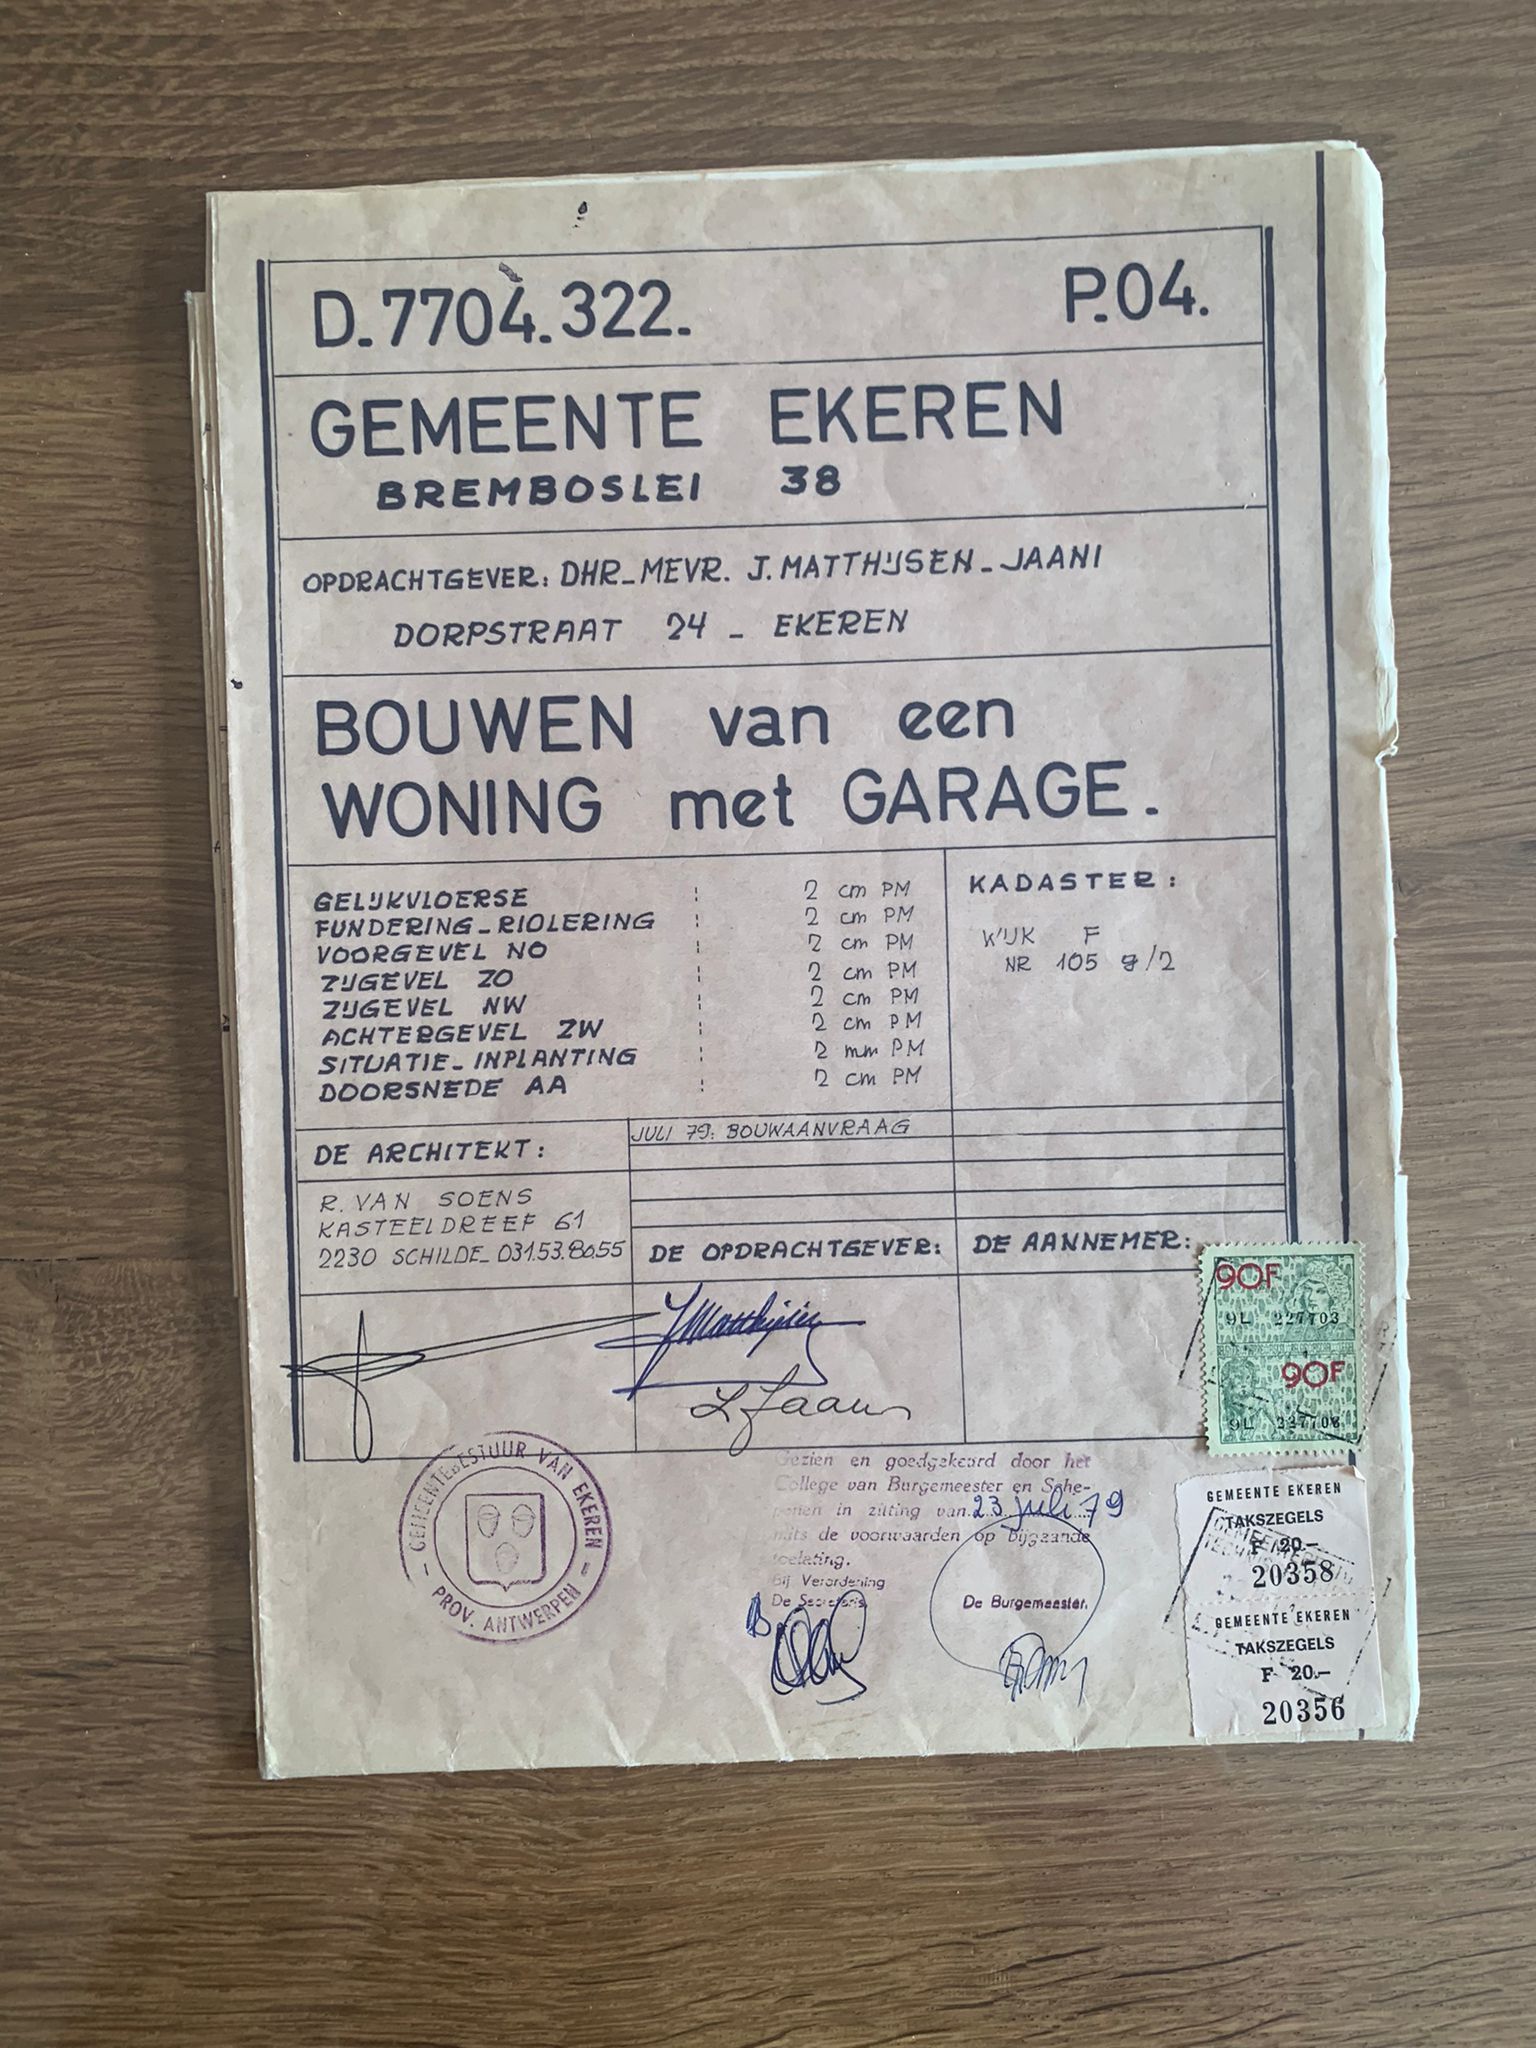 D.7704.322. P.04.
GEMEENTE EKEREN
BREMBOSLEI 38
OPDRACHTGEVER: DHR_MEVR. J. MATTHIJSEN_JAANI
DORPSTRAAT 24 _ EKEREN
BOUWEN van een
WONING met GARAGE.
GELIJKVLOERSE : 2 cm PM
FUNDERING_RIOLERING : 2 cm PM
VOORGEVEL NO : 2 cm PM
ZIJGEVEL ZO : 2 cm PM
ZIJGEVEL NW : 2 cm PM
ACHTERGEVEL ZW : 2 cm PM
SITUATIE_INPLANTING : 2 mm PM
DOORSNEDE AA : 2 cm PM
KADASTER:
WIJK F
NR 105 g/2
JULI 79: BOUWAANVRAAG
DE ARCHITEKT:
R. VAN SOENS
KASTEELDREEF 61
2230 SCHILDE_031.53.80.55
DE OPDRACHTGEVER:
DE AANNEMER:
J Matthijsen
L Jaani
90F
9L 227703
90F
9L 227708
GEMEENTEBESTUUR VAN EKEREN
- PROV. ANTWERPEN -
Gezien en goedgekeurd door het
College van Burgemeester en Sche-
penen in zitting van 23 juli 79
mits de voorwaarden op bijgaande
toelating.
Bij Verordening
De Secretaris,
De Burgemeester,
GEMEENTE EKEREN
TAKSZEGELS
F 20.-
20358
GEMEENTE EKEREN
TAKSZEGELS
F 20.-
20356